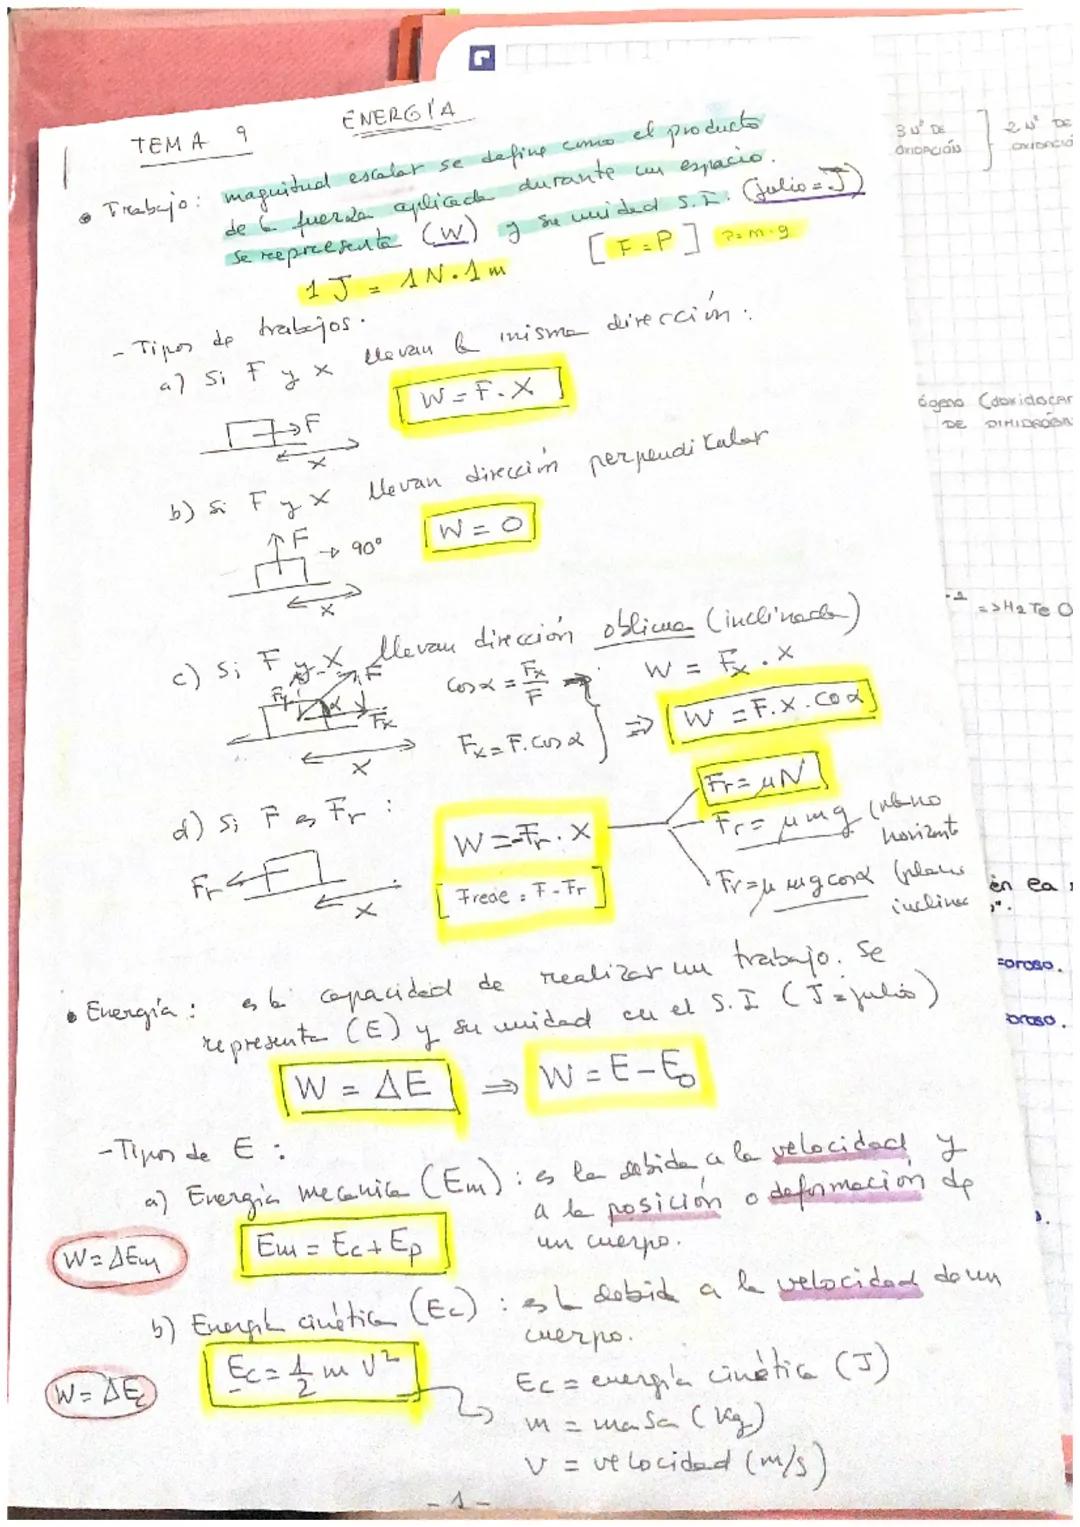 TEMA 9 ENERGÍA
• Trabajo: magnitud escalar se define como el producto
de la fuerza aplicada durante un espacio.
se representa (W) y su unidad S.I: (julio = J)
1 J = 1N.1m [F = P] P = m·g
- Tipos de trabajos.
a) Si F y x llevan la misma dirección:
W = F. X
F
x
b) Si F y x llevan dirección perpendikular
F → 90°
W = 0
x
c) Si F y X llevan dirección oblicua (inclinada)
Fy F
α Fx
x
cos α = Fx/F
Fx = F. cos α
⇒
W = Fx . x
W = F. x. cos α
d) Si F es Fr:
Fr
x
W = -Fr. X
[Frede = F - Fr]
Fr = μN
Fr = μmg (plano
horizont
Fr = μ mg cos α (plano
inclinad
• Energía: es la capacidad de realizar un trabajo. Se
representa (E) y su unidad en el S.I (J = julio)
W = ΔE ⇒ W = E - E₀
- Tipos de E:
a) Energía mecánica (Em): es la debida a la velocidad y
a la posición o deformación de
un cuerpo.
W = ΔEm
Em = Ec + Ep
b) Energía cinética (Ec): es la debida a la velocidad de un
cuerpo.
W = ΔEc
Ec = 1/2 m v²
Ec = energía cinética (J)
m = masa (kg)
v = velocidad (m/s)
- 1 -
3 Nº DE
OXIDACIÓN
2 Nº DE
OXIDACIÓ
ógeno
DE DIHIDRÓG
=> H2 Te O
én ea
oroso.
oroso.